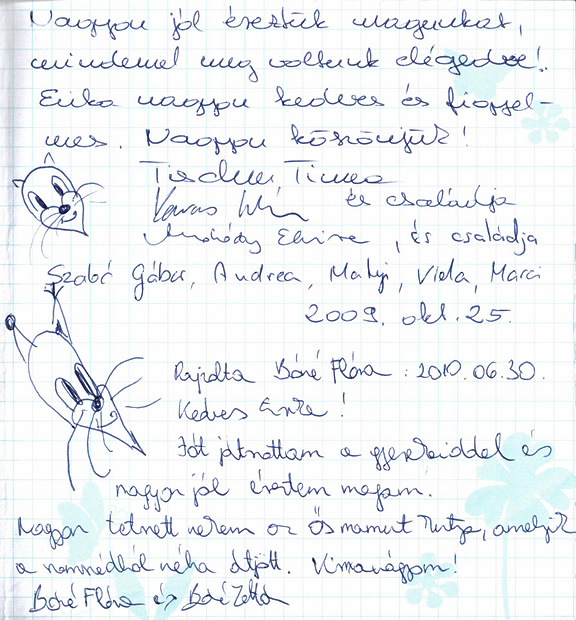 Nagyon jól éreztük magunkat,
mindennel meg voltunk elégedve!
Erika nagyon kedves és figyel-
mes. Nagyon köszönjük!
Timea
és családja
Elvira, és családja
Szabó Gábor, Andrea, Matyi, Viola, Marci
2009. okt. 25.
Rajzolta Bóné Flóra : 2010. 06. 30.
Kedves !
Jót játszottam a gyerekeiddel és
nagyon jól éreztem magam.
Nagyon tetszett nekem az Ősmamut kutya, amelyik
a szomszédból néha átjött.
Bóné Flóra és Bóné Zetta